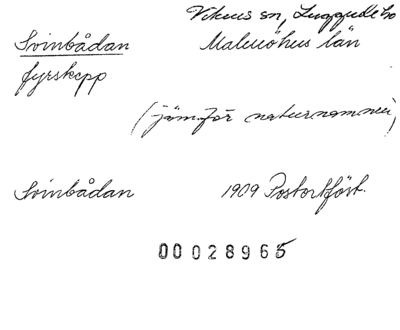 Vikens sn, Luggude hd
Svinbådan Malmöhus län
fyrskepp
(jämför naturnamnen)
Svinbådan 1909 Postortfört.
00028965